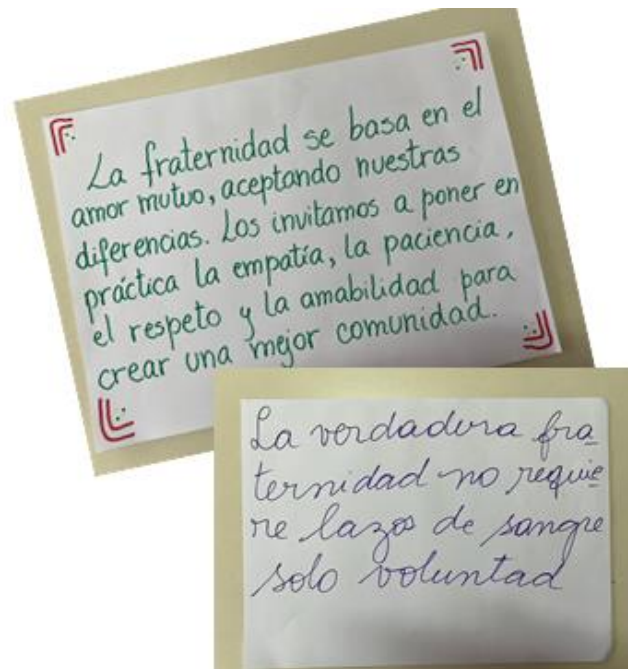 La fraternidad se basa en el
amor mutuo, aceptando nuestras
diferencias. Los invitamos a poner en
práctica la empatía, la paciencia,
el respeto y la amabilidad para
crear una mejor comunidad.
La verdadera fra
ternidad no requie
re lazos de sangre
solo voluntad